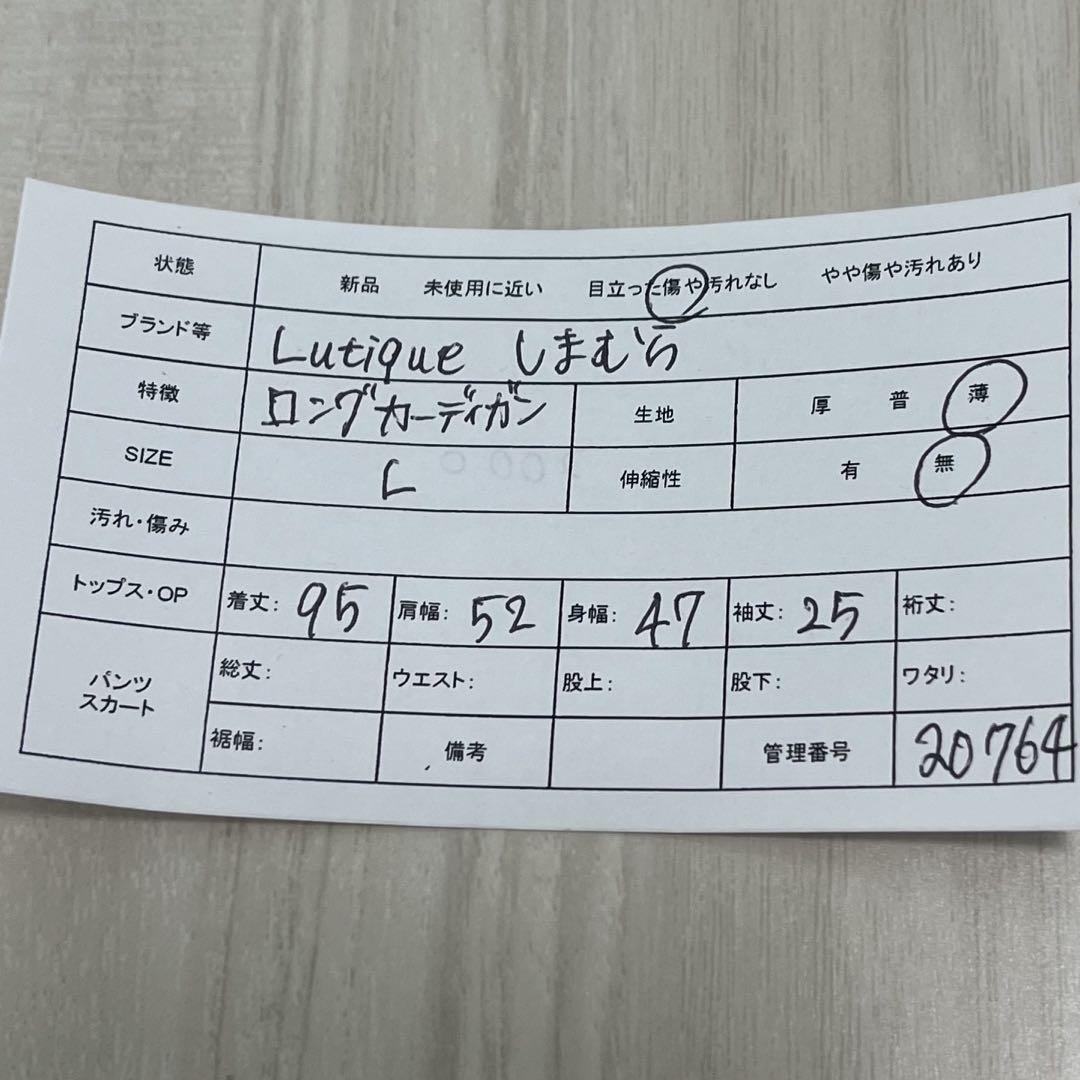 状態 新品 未使用に近い 目立った傷や汚れなし やや傷や汚れあり
ブランド等 Lutique しまむら
特徴 ロングカーディガン 生地 厚 普 薄
SIZE L 伸縮性 有 無
汚れ・傷み
トップス・OP 着丈: 95 肩幅: 52 身幅: 47 袖丈: 25 裄丈:
パンツ
スカート
総丈: ウエスト: 股上: 股下: ワタリ:
裾幅: 備考 管理番号 20764